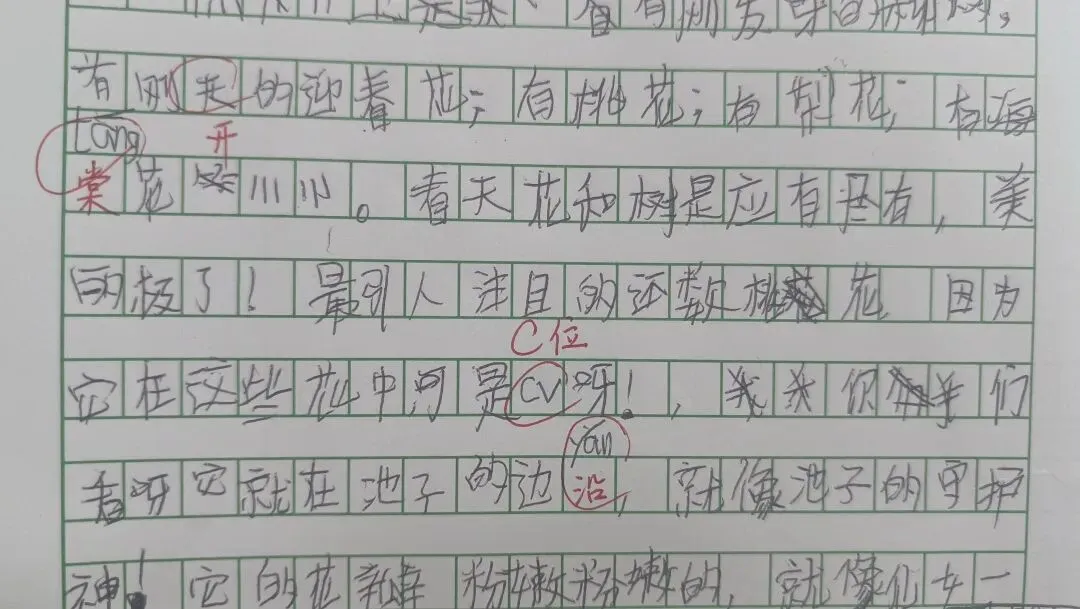 有刚天的迎春花；有桃花；有梨花；有海
táng 开
棠花 川川。春天花和树是应有尽有，美
的极了！最引人注目的还数桃花 因为
C位
它在这些花中可是CV呀！，你们
yán
看呀它就在池子的边沿，就像池子的守护
神！它的花瓣 粉嫩粉嫩的，就像仙女一